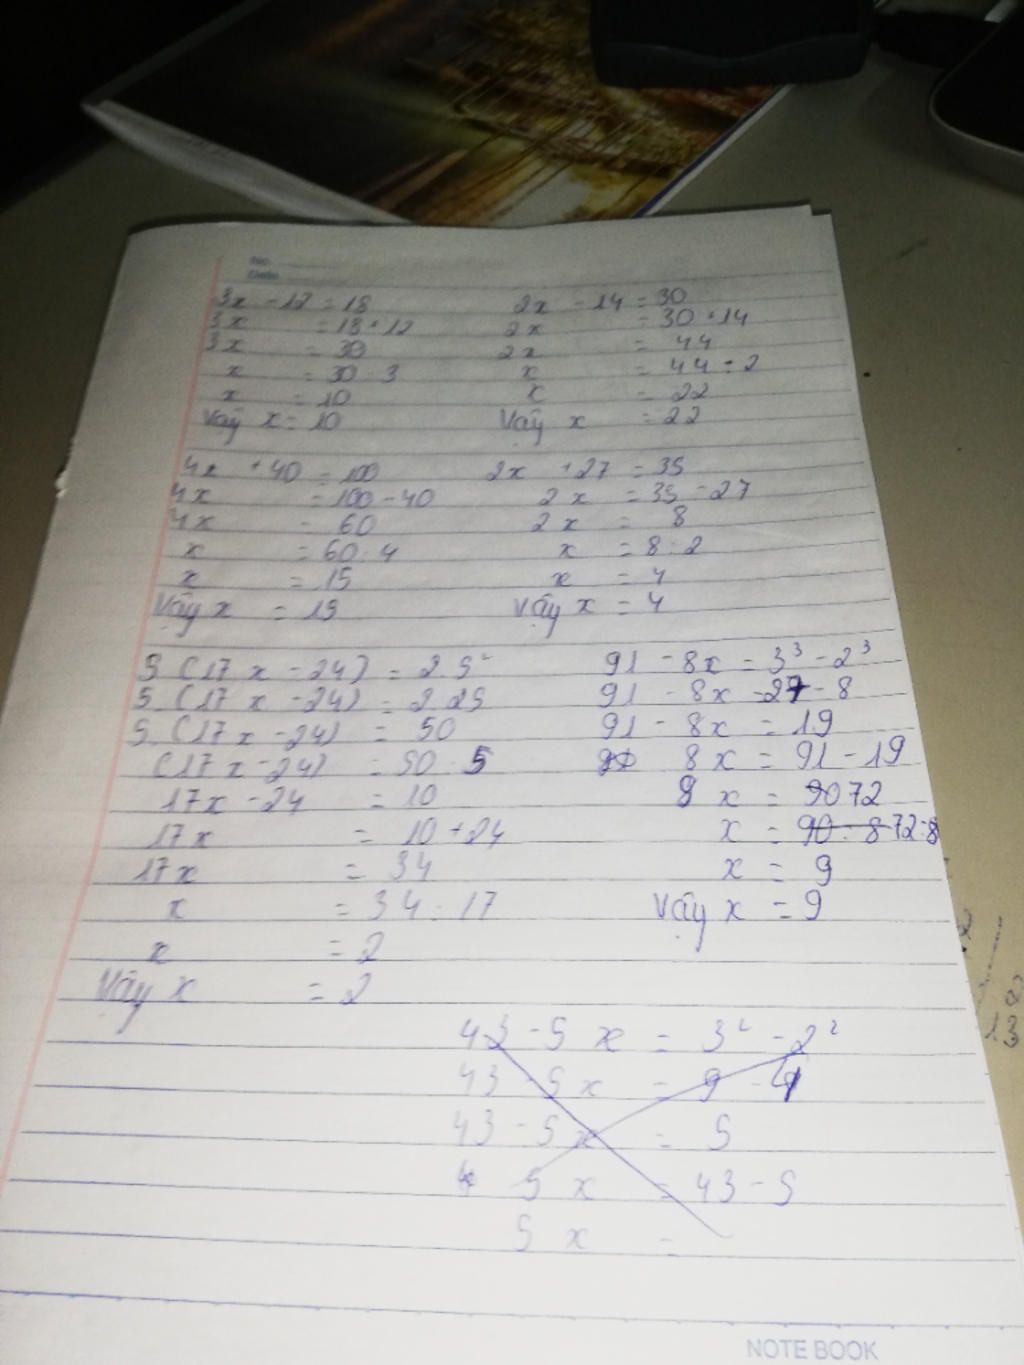 No.
Date
3x - 12 = 18
3x = 18 + 12
3x = 30
x = 30 : 3
x = 10
Vậy x = 10
2x - 14 = 30
2x = 30 + 14
2x = 44
x = 44 : 2
x = 22
Vậy x = 22
4x + 40 = 100
4x = 100 - 40
4x = 60
x = 60 : 4
x = 15
Vậy x = 15
2x + 27 = 35
2x = 35 - 27
2x = 8
x = 8 : 2
x = 4
Vậy x = 4
5.(17x - 24) = 2.5²
5.(17x - 24) = 2.25
5.(17x - 24) = 50
(17x - 24) = 50 : 5
17x - 24 = 10
17x = 10 + 24
17x = 34
x = 34 : 17
x = 2
Vậy x = 2
91 - 8x = 3³ - 2³
91 - 8x = 27 - 8
91 - 8x = 19
8x = 91 - 19
8x = 72
x = 72 : 8
x = 9
Vậy x = 9
43 - 5x = 3² - 2²
43 - 5x = 9 - 4
43 - 5x = 5
5x = 43 - 5
5x =
NOTE BOOK